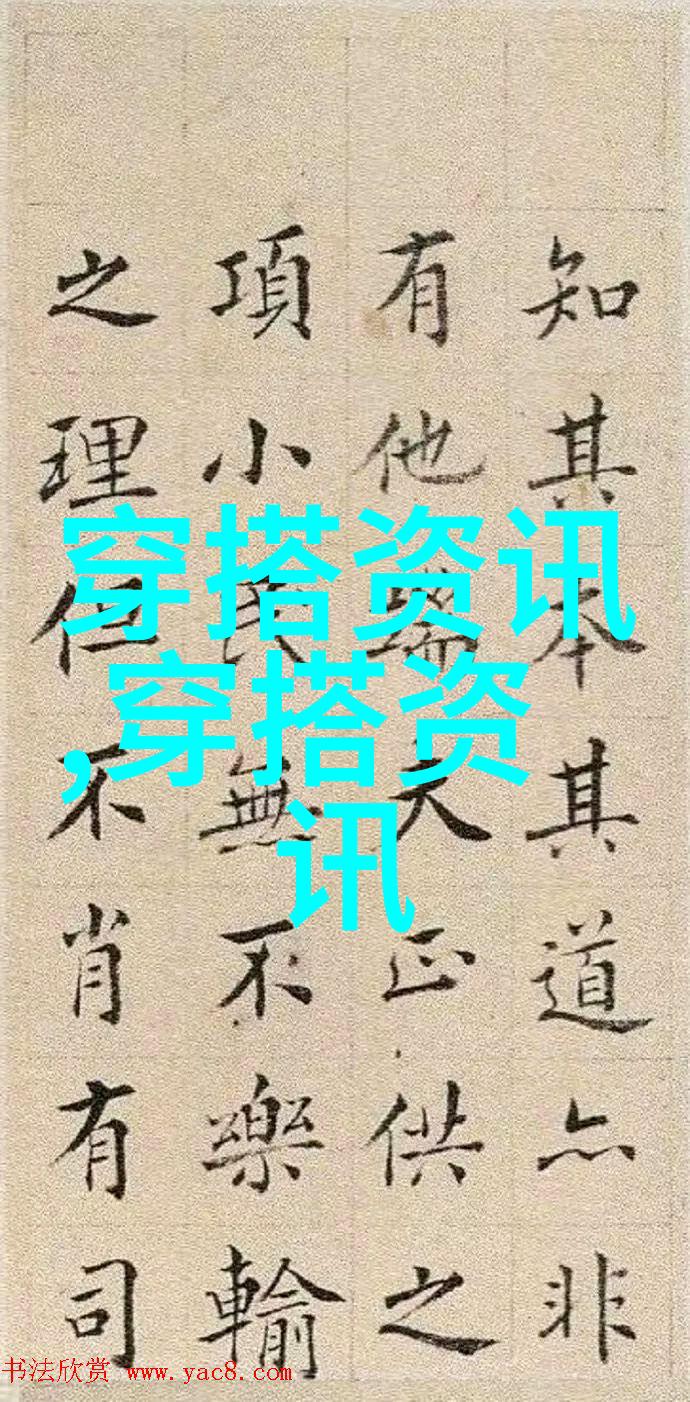 知其本其道亦非
有他端夫正供之
項小民無不樂輸
之理但不肖有司
穿搭资讯
,穿搭资
讯
书法欣赏 www.yac8.com